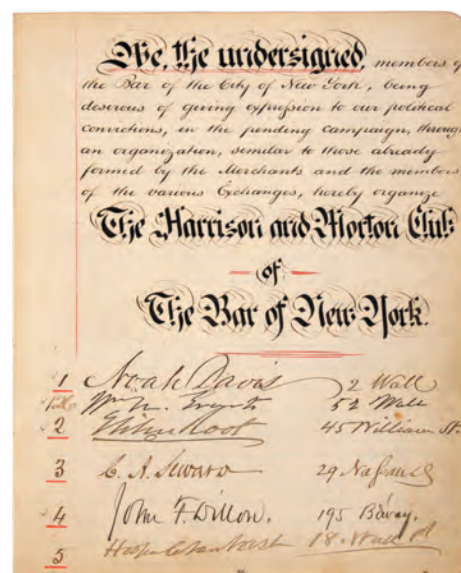 We, the undersigned, members of
the Bar of the City of New York, being
desirous of giving expression to our political
convictions, in the pending campaign, through
an organization, similar to those already
formed by the Merchants and the members
of the various Exchanges, hereby organize
The Harrison and Morton Club
of
The Bar of New York.
1 Noah Davis 2 Wall
Wm M. Evarts 52 Wall
2 Elihu Root 45 William St.
3 C. A. Seward 29 Nassau
4 John F. Dillon. 195 B'way.
5 18 Wall St